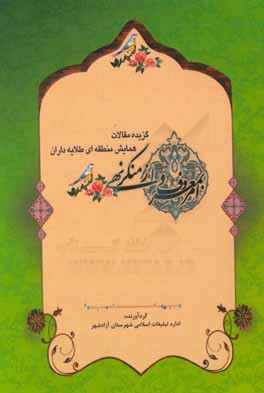 گزیده مقالات
همایش منطقه ای طلایه داران
امر به معروف و نهی از منکر
گردآورنده:
اداره تبلیغات اسلامی شهرستان آزادشهر